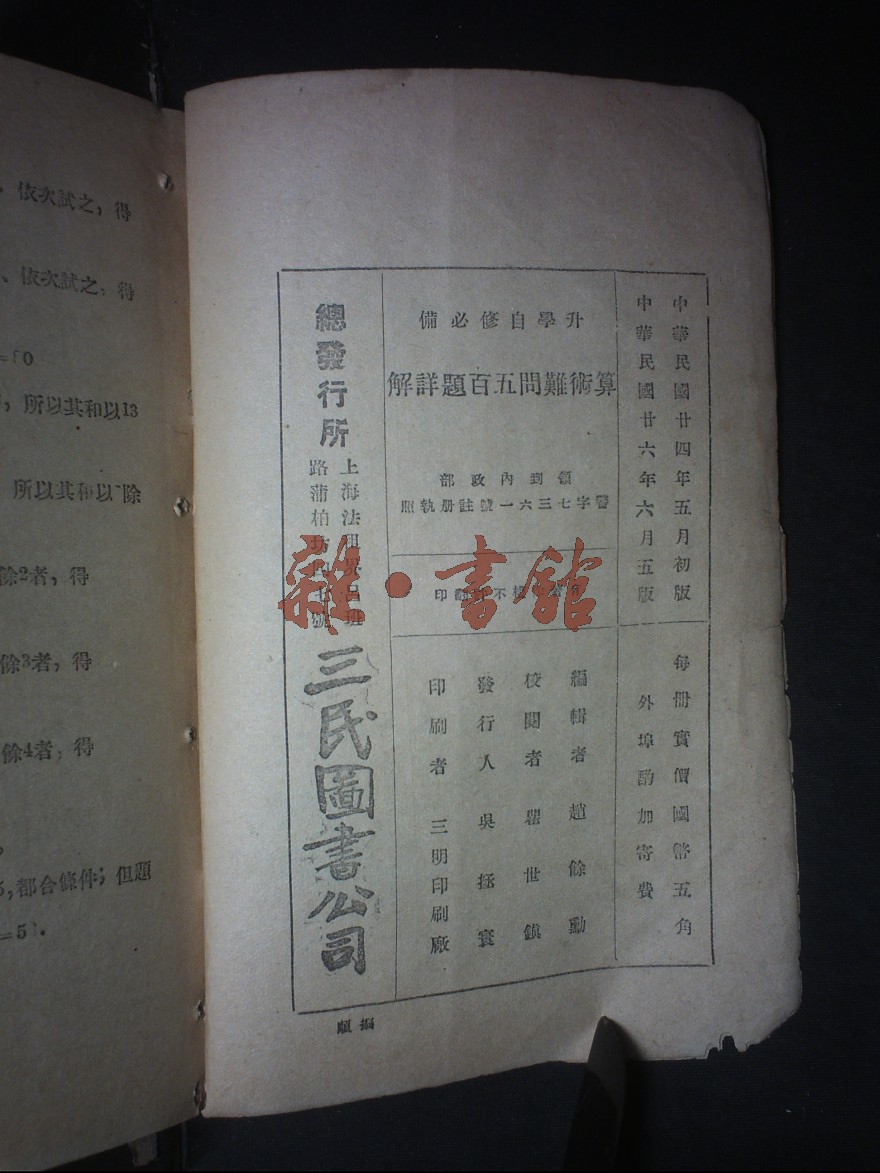 中華民國廿四年五月初版
中華民國廿六年六月五版
每冊實價國幣五角
外埠酌加寄費
升學自修必備
算術難問五百題詳解
領到內政部
警字七三六一號註册執照
不 印
編輯者 趙餘勳
校閱者 瞿世鎮
發行人 吳拯寰
印刷者 三明印刷廠
總發行所
上海法租界呂班
路蒲柏坊 號
三民圖書公司
雜·書館
依次試之,得
、依次試之,得
所以其和以13
所以其和以 除
餘2者,得
餘3者,得
餘4者,得
5,都合條件;但題
=5